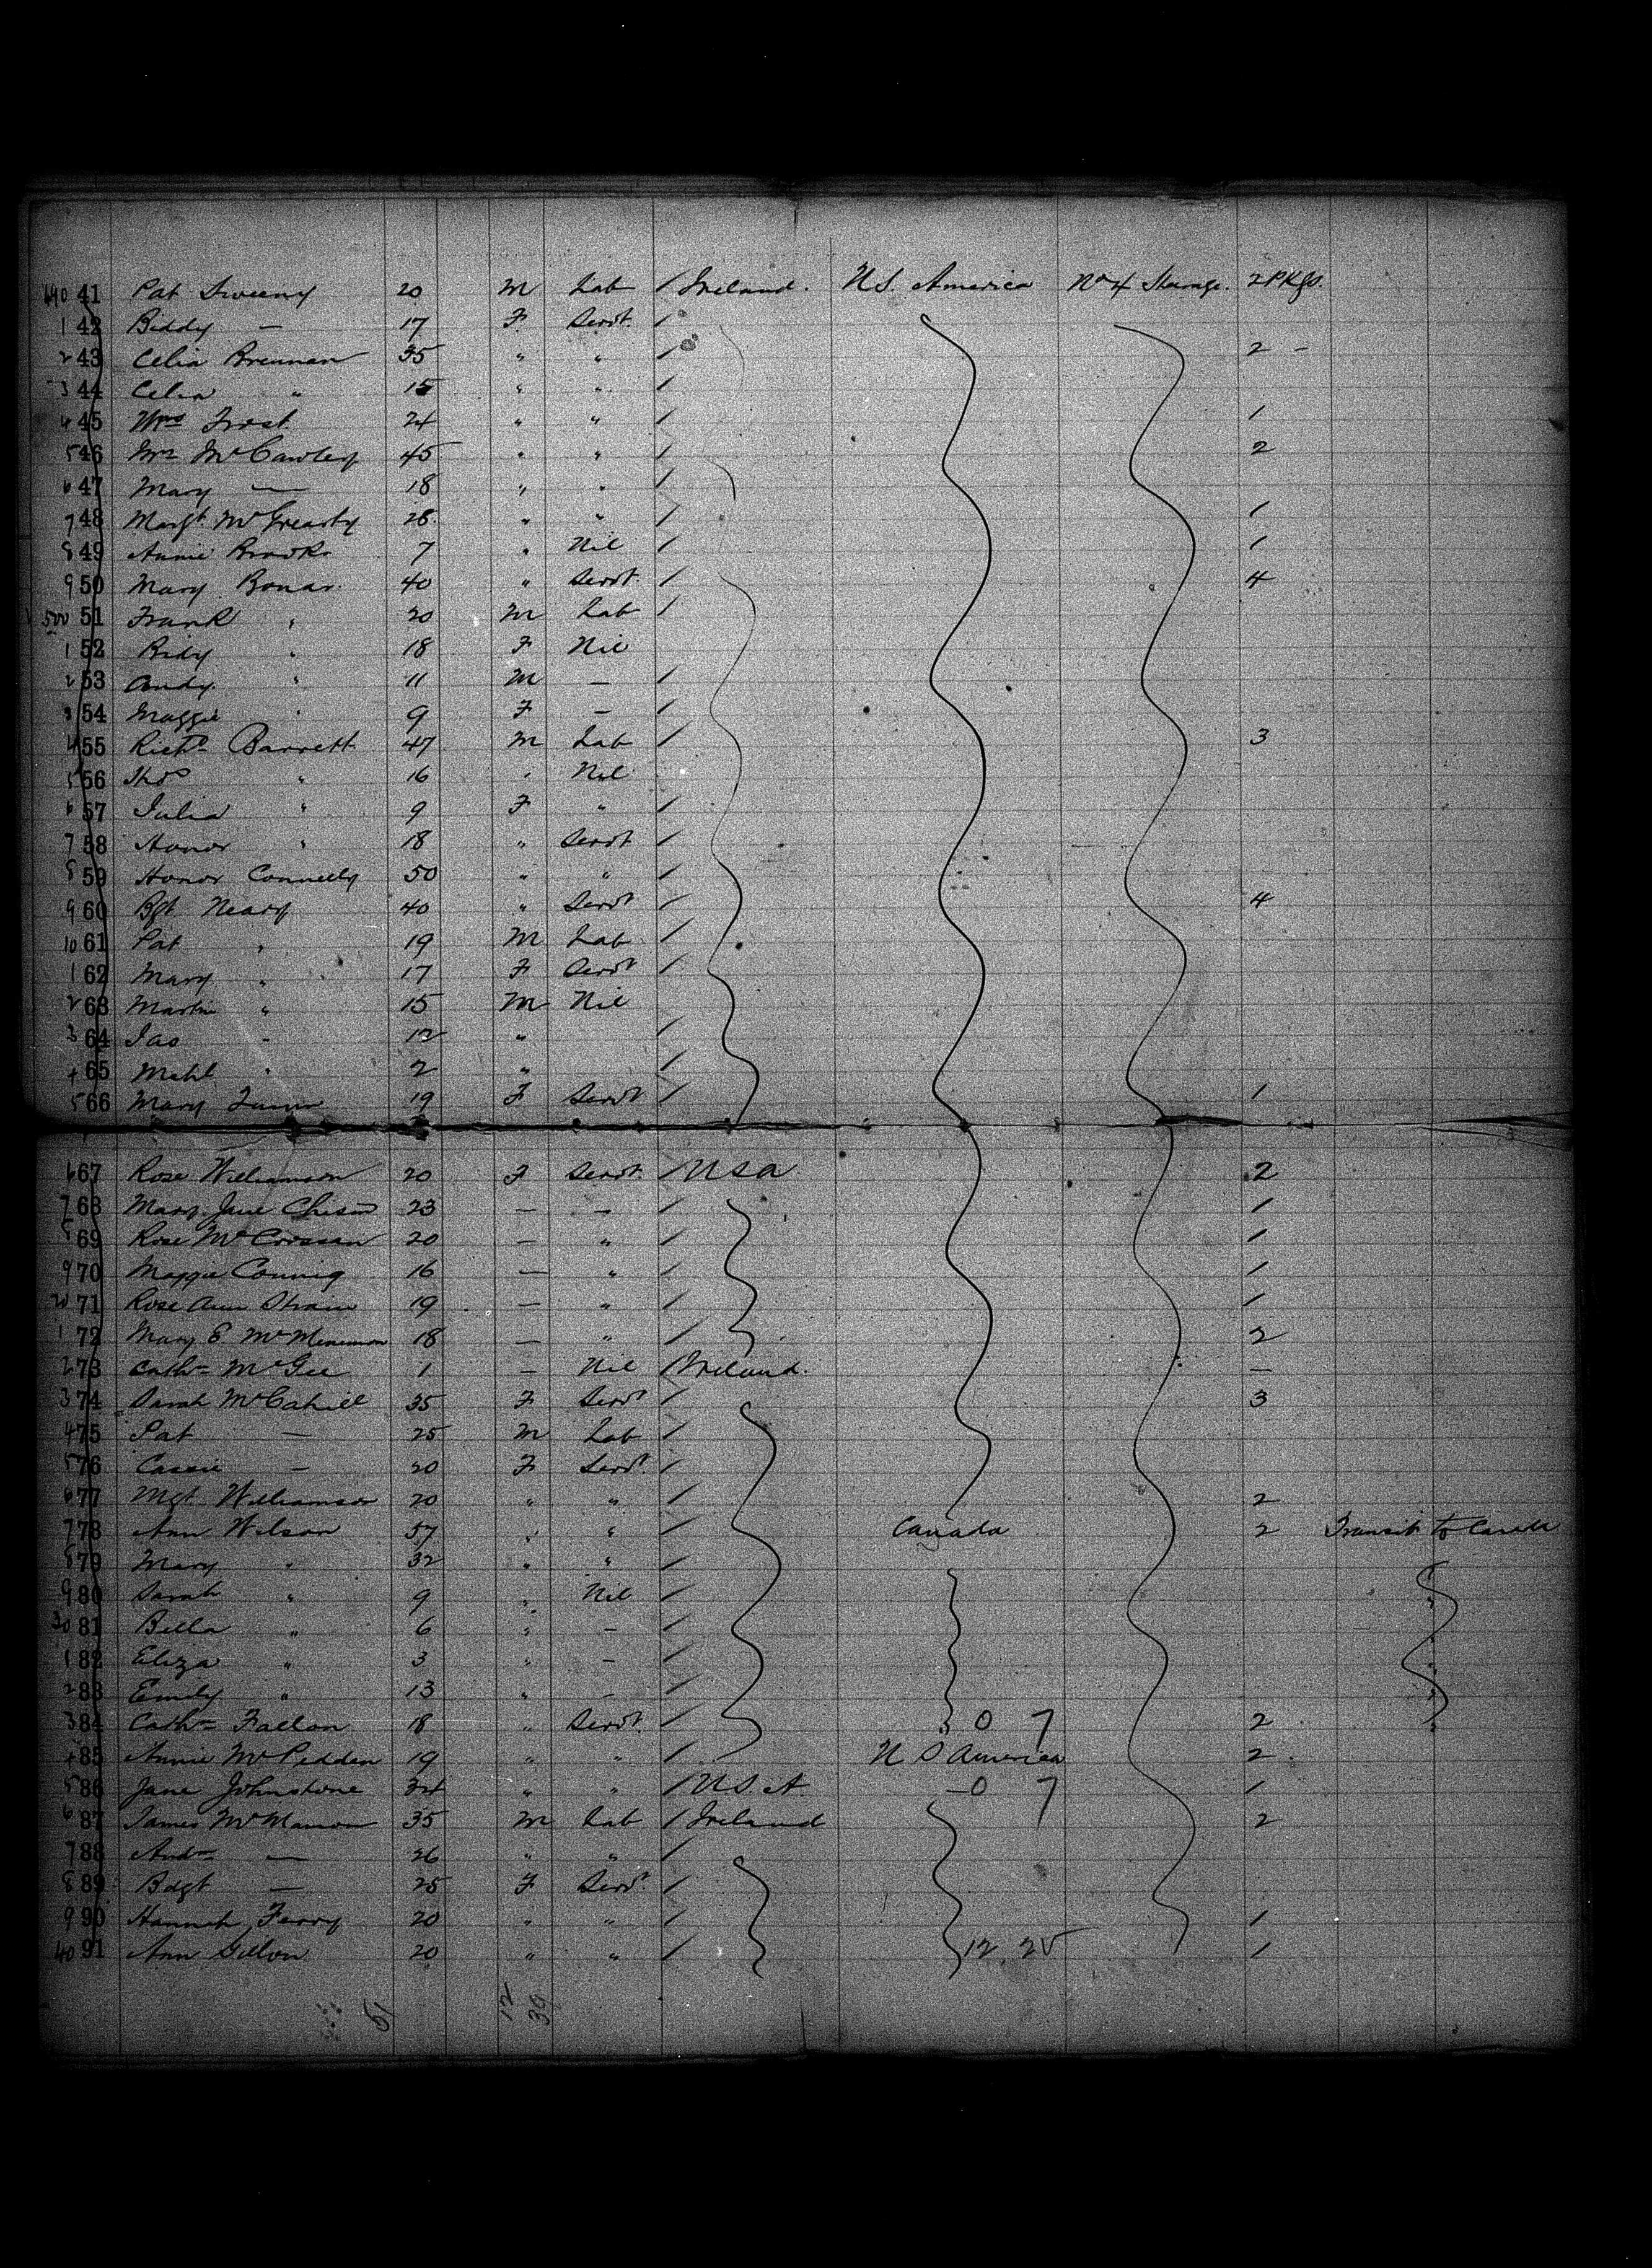 490 41 Pat Sweeny 20 M Lab / Ireland. U.S. America No 4 Steerage. 2 Pkgs.
1 42 Biddy — 17 F Servt. /
2 43 Celia Brennan 35 " " / 2 -
3 44 Celia " 15 " " /
4 45 Mrs Frost 24 " " / 1
5 46 Mrs McCawley 45 " " / 2
6 47 Mary — 18 " " /
7 48 Margt. McGrearty 28 " " / 1
8 49 Annie Brooks 7 " Nil / 1
9 50 Mary Bonar. 40 " Servt. / 4
500 51 Frank " 20 M Lab /
1 52 Bidy " 18 F Nil
2 53 Andy. " 11 M — /
3 54 Maggie " 9 F — /
4 55 Richd. Barrett 47 M Lab / 3
5 56 Thos " 16 " Nil
6 57 Julia " 9 F " /
7 58 Honor " 18 " Servt /
8 59 Honor Connelly 50 " " /
9 60 Bgt Neary 40 " Servt / 4
10 61 Pat " 19 M Lab /
1 62 Mary " 17 F Servt /
2 63 Martin " 15 M Nil
3 64 Jas " 12 " /
4 65 Michl " 2 " /
5 66 Mary 19 F Servt / 1
6 67 Rose Williamson 20 F Servt. / USA 2
7 68 Mary Jane Chism 23 — — / 1
8 69 Rose McCrossen 20 — " / 1
9 70 Maggie 16 — " / 1
20 71 Rose Ann Strain 19 — " / 1
1 72 Mary E McMenemon 18 — " / 2
2 73 Cathn McGee 1 — Nil / Ireland. —
3 74 Sarah McCahill 35 F Servt / 3
4 75 Pat — 25 M Lab /
5 76 Cassie — 20 F Servt. /
6 77 Mgt Williamson 20 " " / 2
7 78 Ann Wilson 57 " " / Canada 2 Transit to Canada
8 79 Mary " 32 " " /
9 80 Sarah " 9 " Nil /
30 81 Bella " 6 " — /
1 82 Eliza " 3 " — /
2 83 Emily " 13 " — /
3 84 Cathn Fallon 18 " Servt. / 0 7 2
4 85 Annie McPedden 19 " " / U S America 2
5 86 Jane Johnstone 34 " " / U.S.A. — 0 7 1
6 87 James McManon 35 M Lab / Ireland 2
7 88 Andw — 26 " " /
8 89 Bdgt — 25 F Servt. /
9 90 Hannah Ferry 20 " " / 1
40 91 Ann Gillon 20 " " / 12 25 1
51 12 39